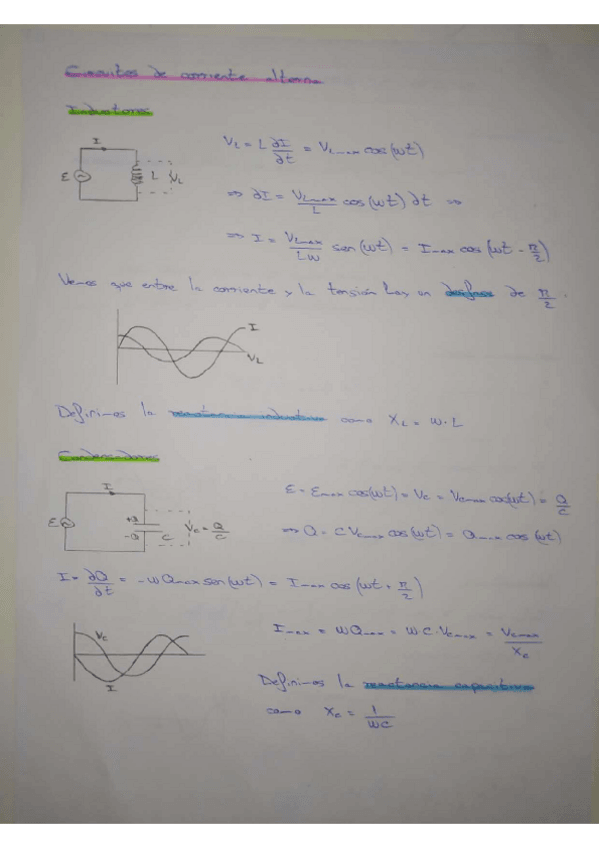 Circuitos de corriente alterna
Inductores
I
E
L
V_L
V_L = L ∂I/∂t = V_Lmax cos(ωt)
⇒ ∂I = V_Lmax/L cos(ωt) ∂t ⇒
⇒ I = V_Lmax/Lω sen(ωt) = I_max cos(ωt - π/2)
Vemos que entre la corriente y la tensión hay un desfase de π/2.
I
V_L
Definimos la reactancia inductiva como X_L = ω·L
Condensadores
I
E
+Q
-Q
C
V_C = Q/C
E = E_max cos(ωt) = V_C = V_Cmax cos(ωt) = Q/C
⇒ Q = C V_Cmax cos(ωt) = Q_max cos(ωt)
I = ∂Q/∂t = -ωQ_max sen(ωt) = I_max cos(ωt + π/2)
V_C
I
I_max = ωQ_max = ωC·V_Cmax = V_Cmax/X_C
Definimos la reactancia capacitiva
como X_C = 1/ωC